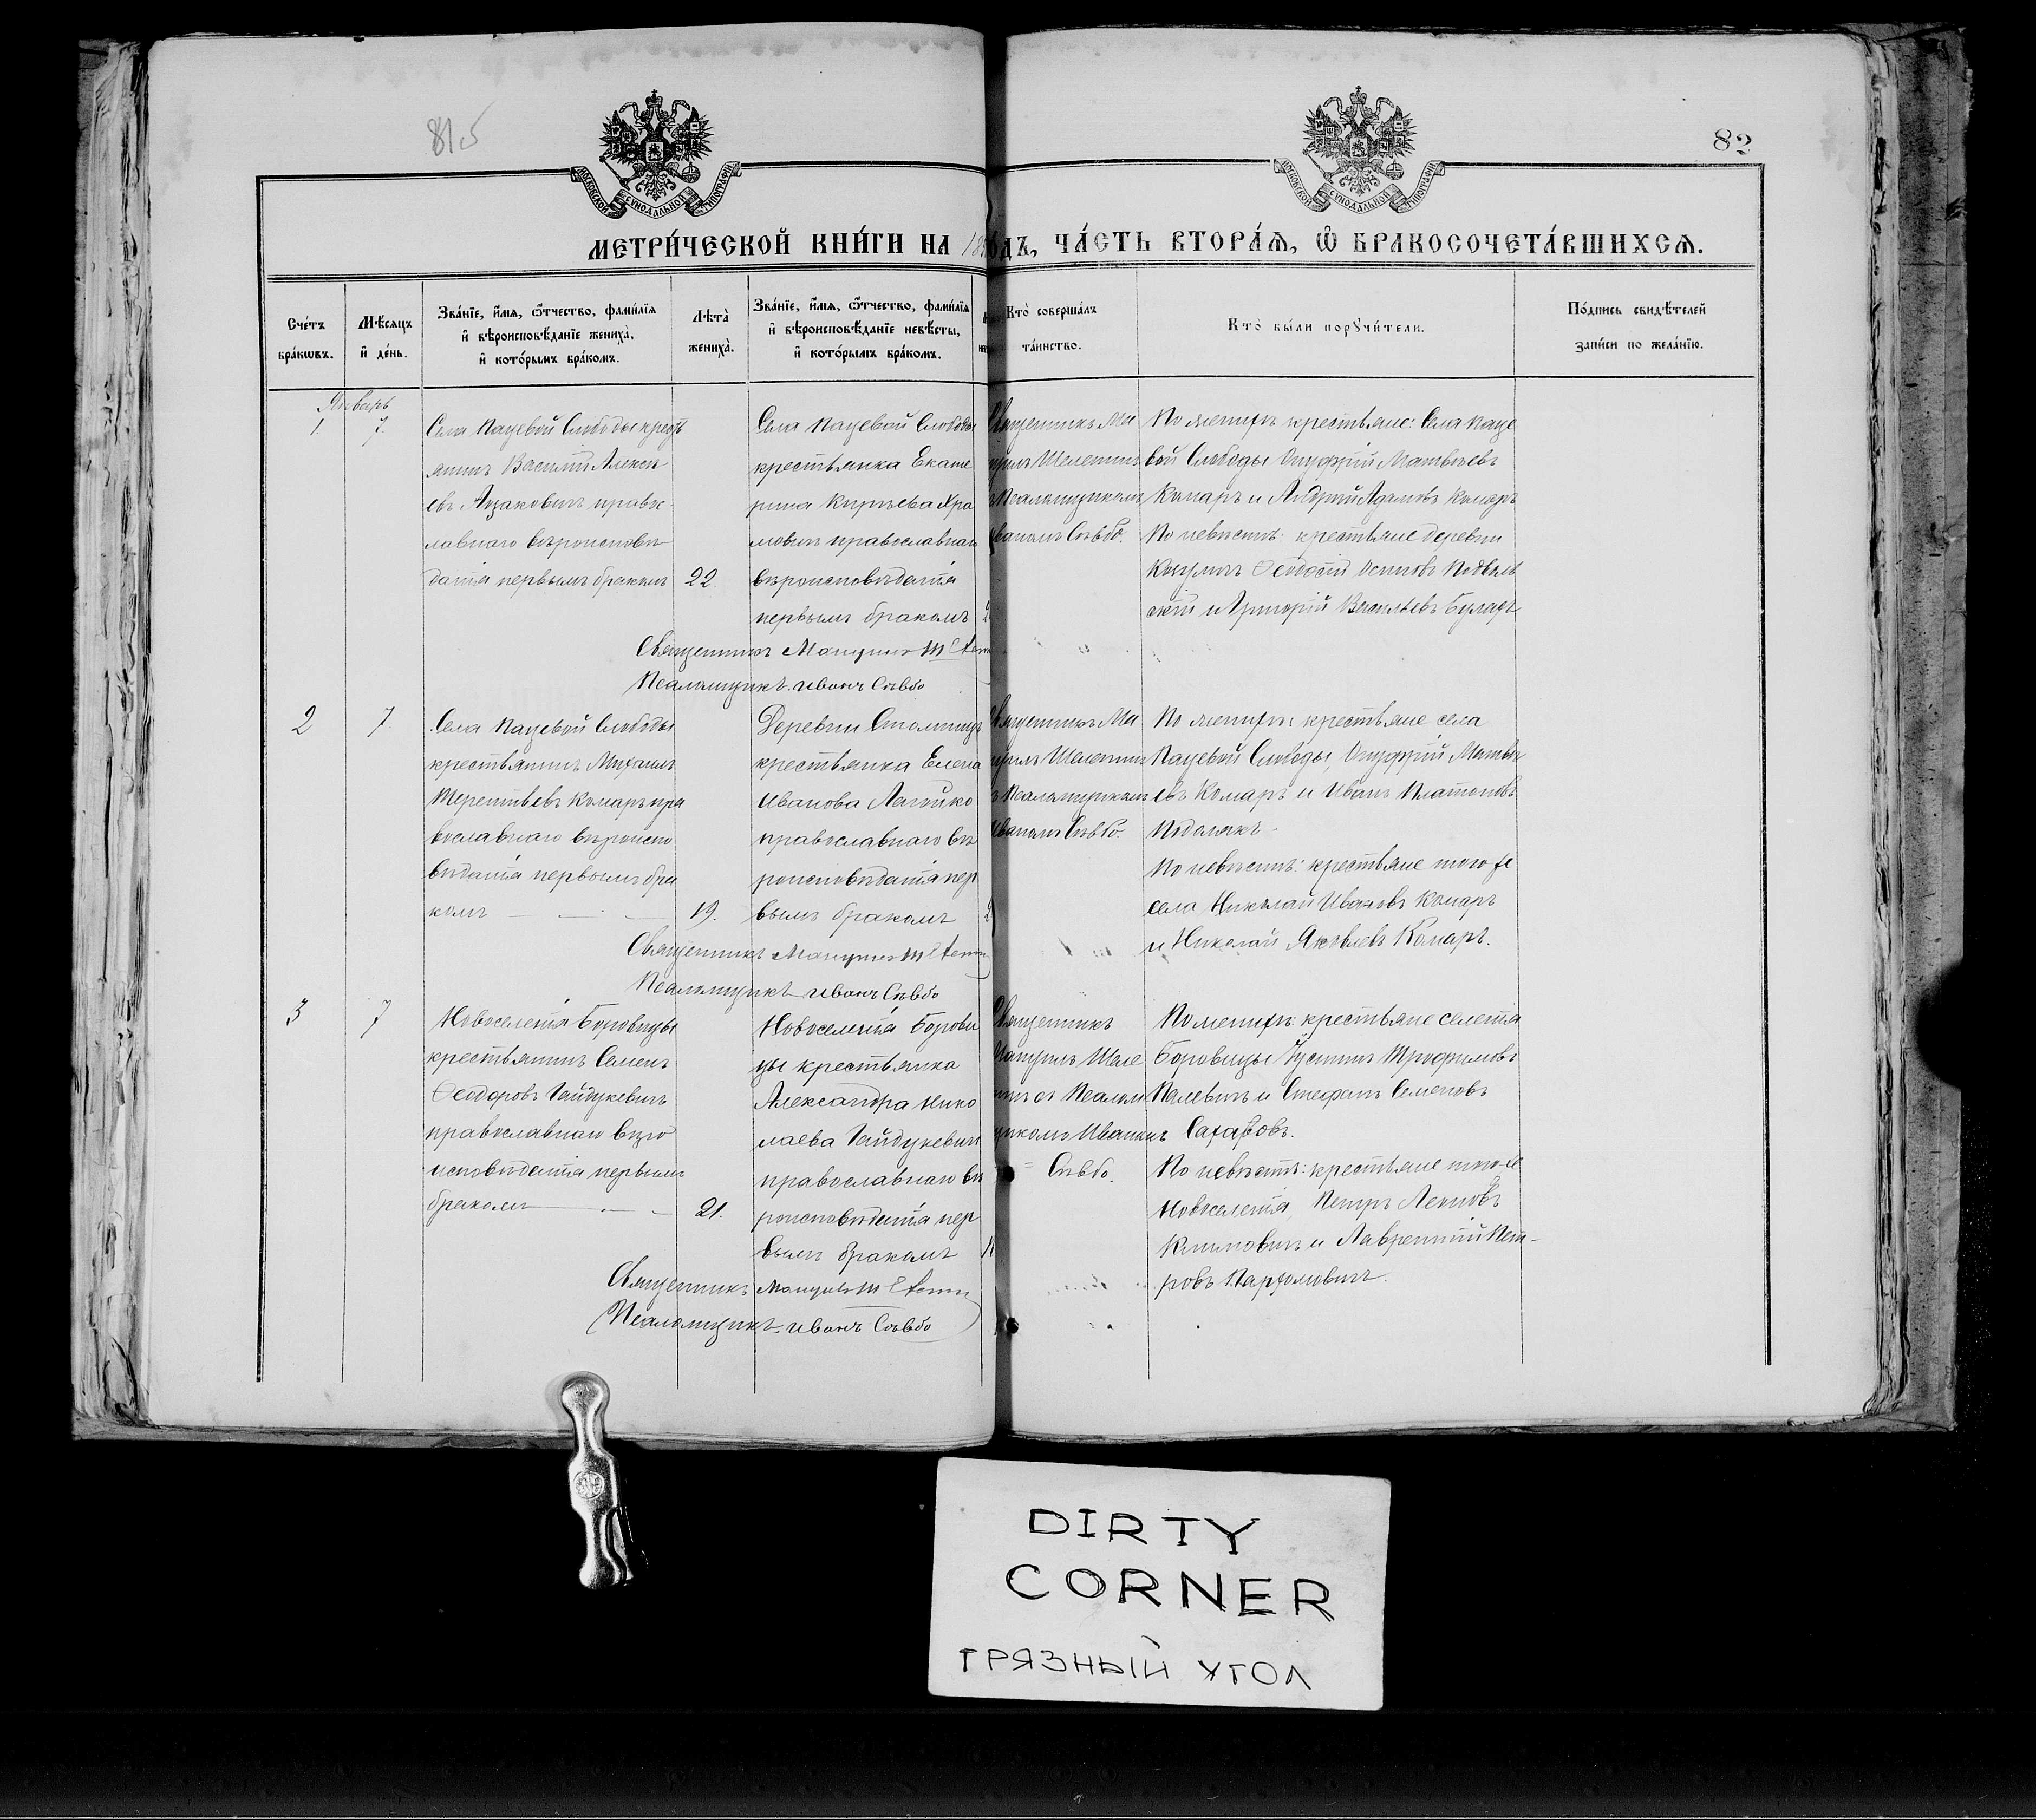 815
82
МОСКОВСКОЙ СѴНОДАЛЬНОЙ ТИПОГРАФІИ
МОСКОВСКОЙ СѴНОДАЛЬНОЙ ТИПОГРАФІИ
МЕТРИ́ЧЕСКОЙ КНИ́ГИ НА 18 ДЪ, ЧА́СТЬ ВТОРА́Я, Ѡ БРАКОСОЧЕТА́ВШИХСЯ.
Сче́тъ
бра́кѡвъ.
Мѣ́сяцъ
и҆ де́нь.
Зва́нїе, и҆́мя, ѻ҆́тчество, фами́лїя
и҆ вѣроисповѣ́данїе жениха̀,
и҆ кото́рымъ бра́комъ.
Лѣта̀
жениха̀.
Зва́нїе, и҆́мя, ѻ҆́тчество, фами́лїя
и҆ вѣроисповѣ́данїе невѣ́сты,
и҆ кото́рымъ бра́комъ.
Кто̀ соверша́лъ
та́инство.
Кто̀ бы́ли порꙋчи́тели.
По́дпись свидѣ́телей
за́писи по жела́нїю.
Январь
1. 7.
Села Пацевой Слободы крест
янинъ Василій Алексѣ
евъ православ
лавнаго вѣроисповѣ
данія первымъ бракомъ 22
Села Пацевой Слободы
крестьянка Екате
рина Хра
мовичъ православнаго
вѣроисповѣданія
первымъ бракомъ
Священникъ Ма
Шелепинъ
Псаломщикомъ
Иваномъ Сѣвбо.
По женихѣ крестьяне: Села Паце
вой Слободы Онуфрій Матвѣевъ
Комаръ и Андрей Адамовъ Комаръ
По невѣстѣ: крестьяне деревни
Ѳеодосій Осиповъ
и Григорій Васильевъ
Священникъ
Псаломщикъ Иванъ Сѣвбо
2 7
Села Пацевой Слободы
крестьянинъ Михаилъ
Терентьевъ Комаръ пра
вославнаго вѣроиспо
вѣданія первымъ бра
комъ — 19.
Деревни
крестьянка Елена
Иванова
православнаго вѣ
роисповѣданія пер
вымъ бракомъ
Священникъ Ма
Шелепинъ
Псаломщикомъ
Иваномъ Сѣвбо.
По женихѣ: крестьяне села
Пацевой Слободы, Онуфрій Матвѣ
евъ Комаръ и Иванъ Платоновъ
Подолякъ
По невѣстѣ: крестьяне того же
села Николай Ивановъ Комаръ
и Николай Яковлевъ Комаръ.
Священникъ
Псаломщикъ Иванъ Сѣвбо
3 7
Новоселенія Боровицы
крестьянинъ Семенъ
Ѳеодоровъ Гайдукевичъ
православнаго вѣро
исповѣданія первымъ
бракомъ — 21.
Новоселенія Борови
цы крестьянка
Александра Нико
лаева Гайдукевичъ
православнаго вѣ
роисповѣданія пер
вымъ бракомъ
Священникъ
Шеле
Псалом
щикомъ Иваномъ
Сѣвбо.
По женихѣ: крестьяне селенія
Боровицы Іустинъ Трофимовъ
Палевичъ и Стефанъ Семеновъ
По невѣстѣ: крестьяне того же
Новоселенія, Петръ
Климовичъ и Лаврентій Пет-
ровъ Пархомовичъ.
Священникъ
Псаломщикъ Иванъ Сѣвбо
DIRTY
CORNER
ГРЯЗНЫЙ УГОЛ